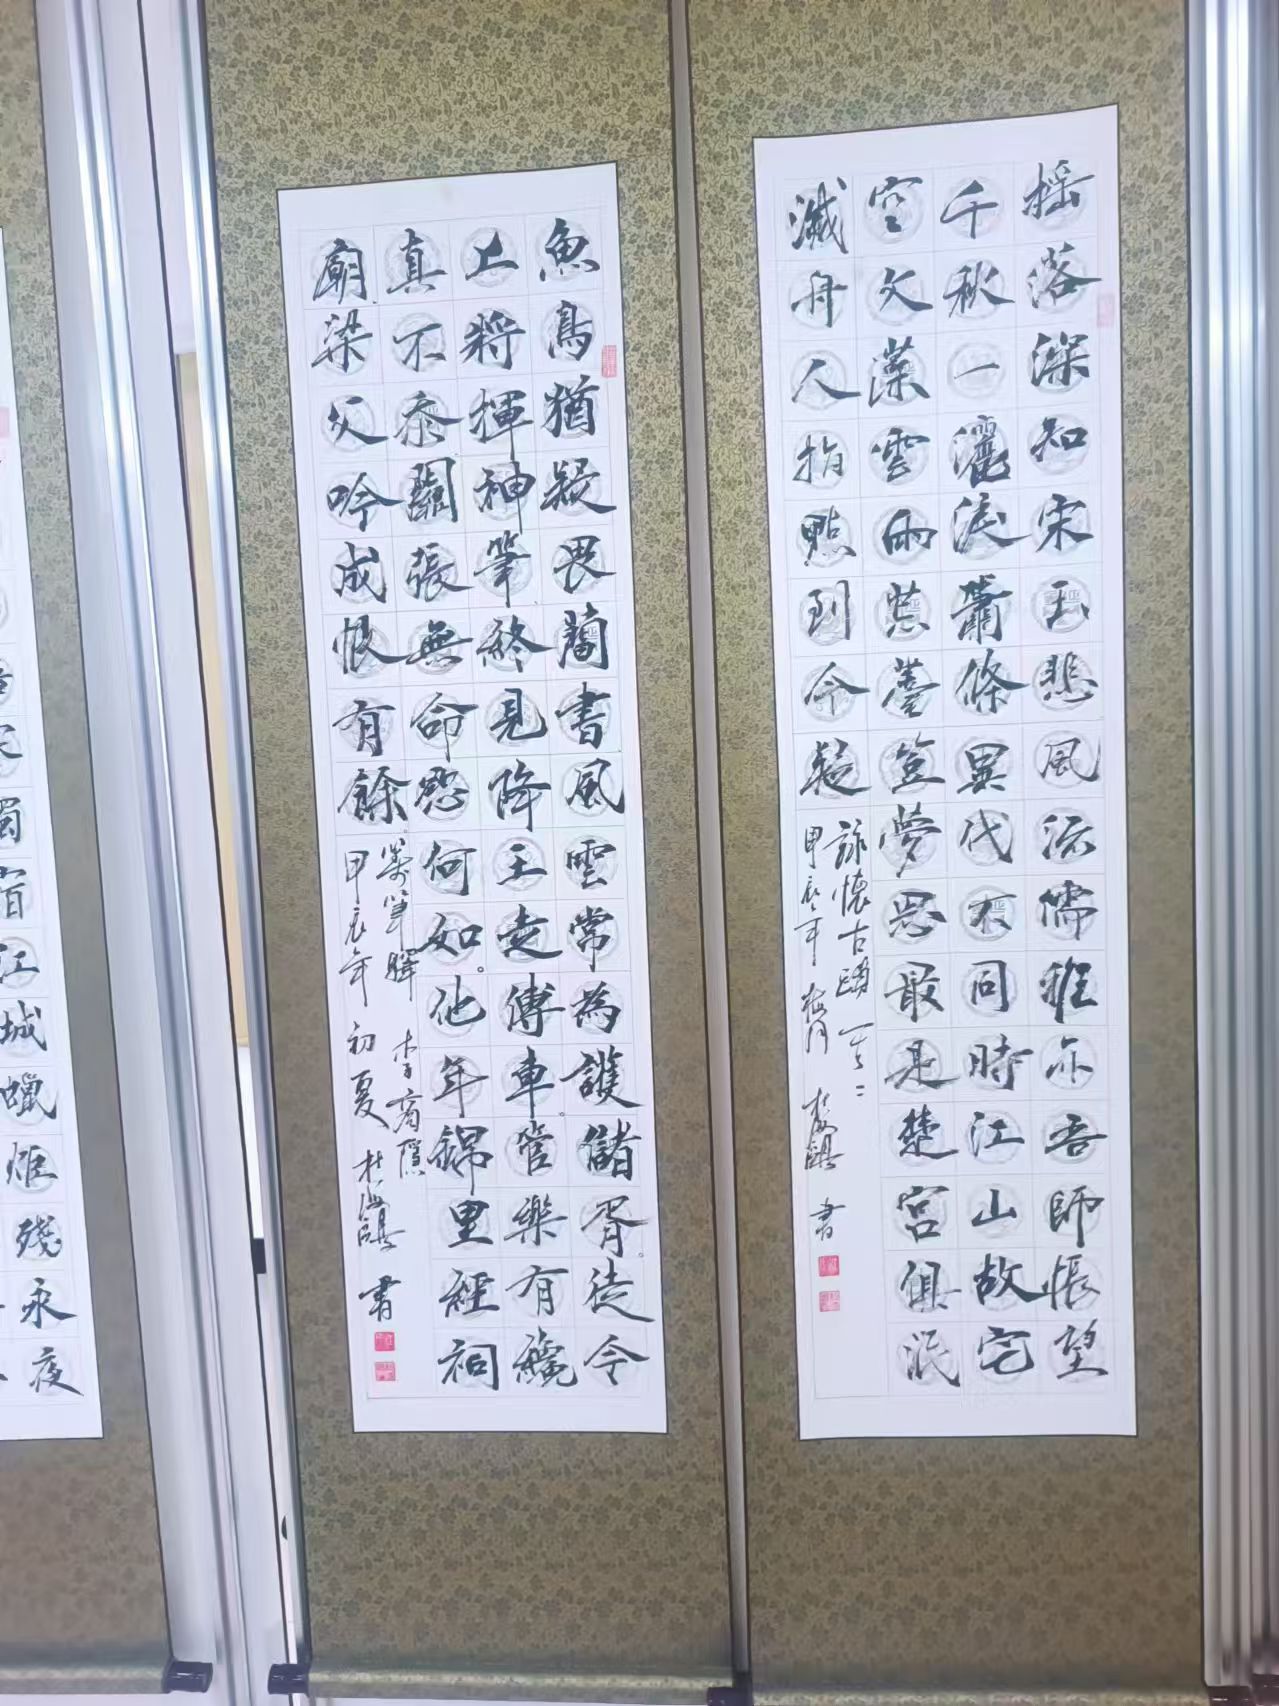 摇落深知宋玉悲風流儒雅亦吾師悵望
千秋一灑淚蕭條異代不同時江山故宅
空文藻雲雨荒臺豈夢思最是楚宮俱泯
滅舟人指點到今疑
詠懷古蹟
甲辰年 梅月 書
魚鳥猶疑畏簡書風雲常為護儲胥。徒令
上將揮神筆終見降王走傳車。管樂有
真不忝關張無命慾何如。他年錦里經祠
廟梁父吟成恨有餘。
籌筆驛 李商隱
甲辰年 初夏 書
獨宿江城蠟炬殘永夜